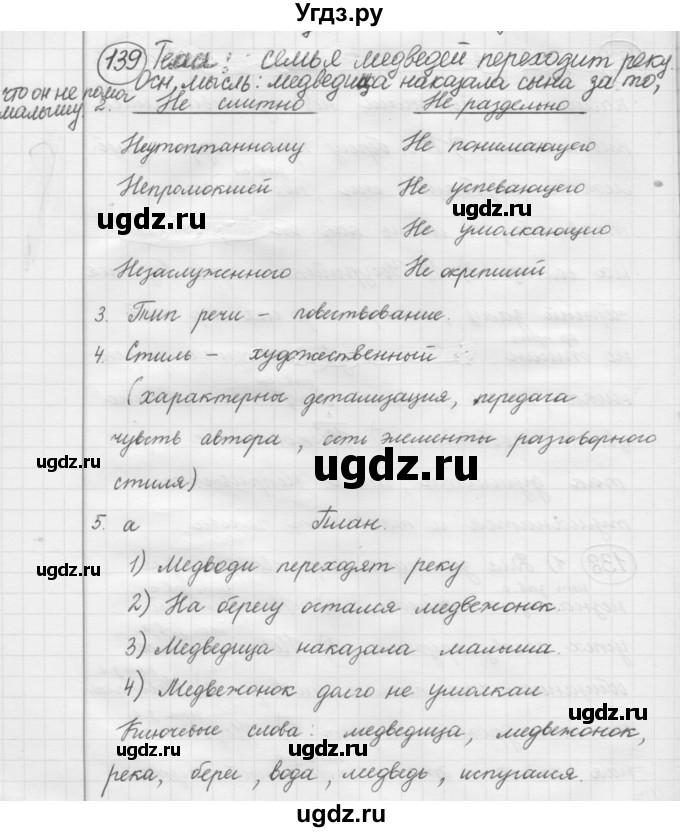 Угдз.ру
139 Тема: семья медведей переходит реку.
Осн. мысль: медведица наказала сына за то,
что он не помог
малышу. 2. Не слитно Не раздельно
Неутоптанному Не понимающего
Непромокшей Не успевающего
ugdz.ru ugdz.ru
Не умолкающего
Незаслуженного Не окрепший
3. Тип речи – повествование.
4. Стиль – художественный
(характерны детализация, передача
чувств автора, есть элементы разговорного
ugdz.ru ugdz.ru
стиля)
5. а План.
1) Медведи переходят реку
ugdz.ru
2) На берегу остался медвежонок.
3) Медведица наказала малыша.
4) Медвежонок долго не умолкал
ugdz.ru
Ключевые слова: медведица, медвежонок,
ugdz.ru ugdz.ru
река, берег, вода, медведь, испугался.
ugdz.ru